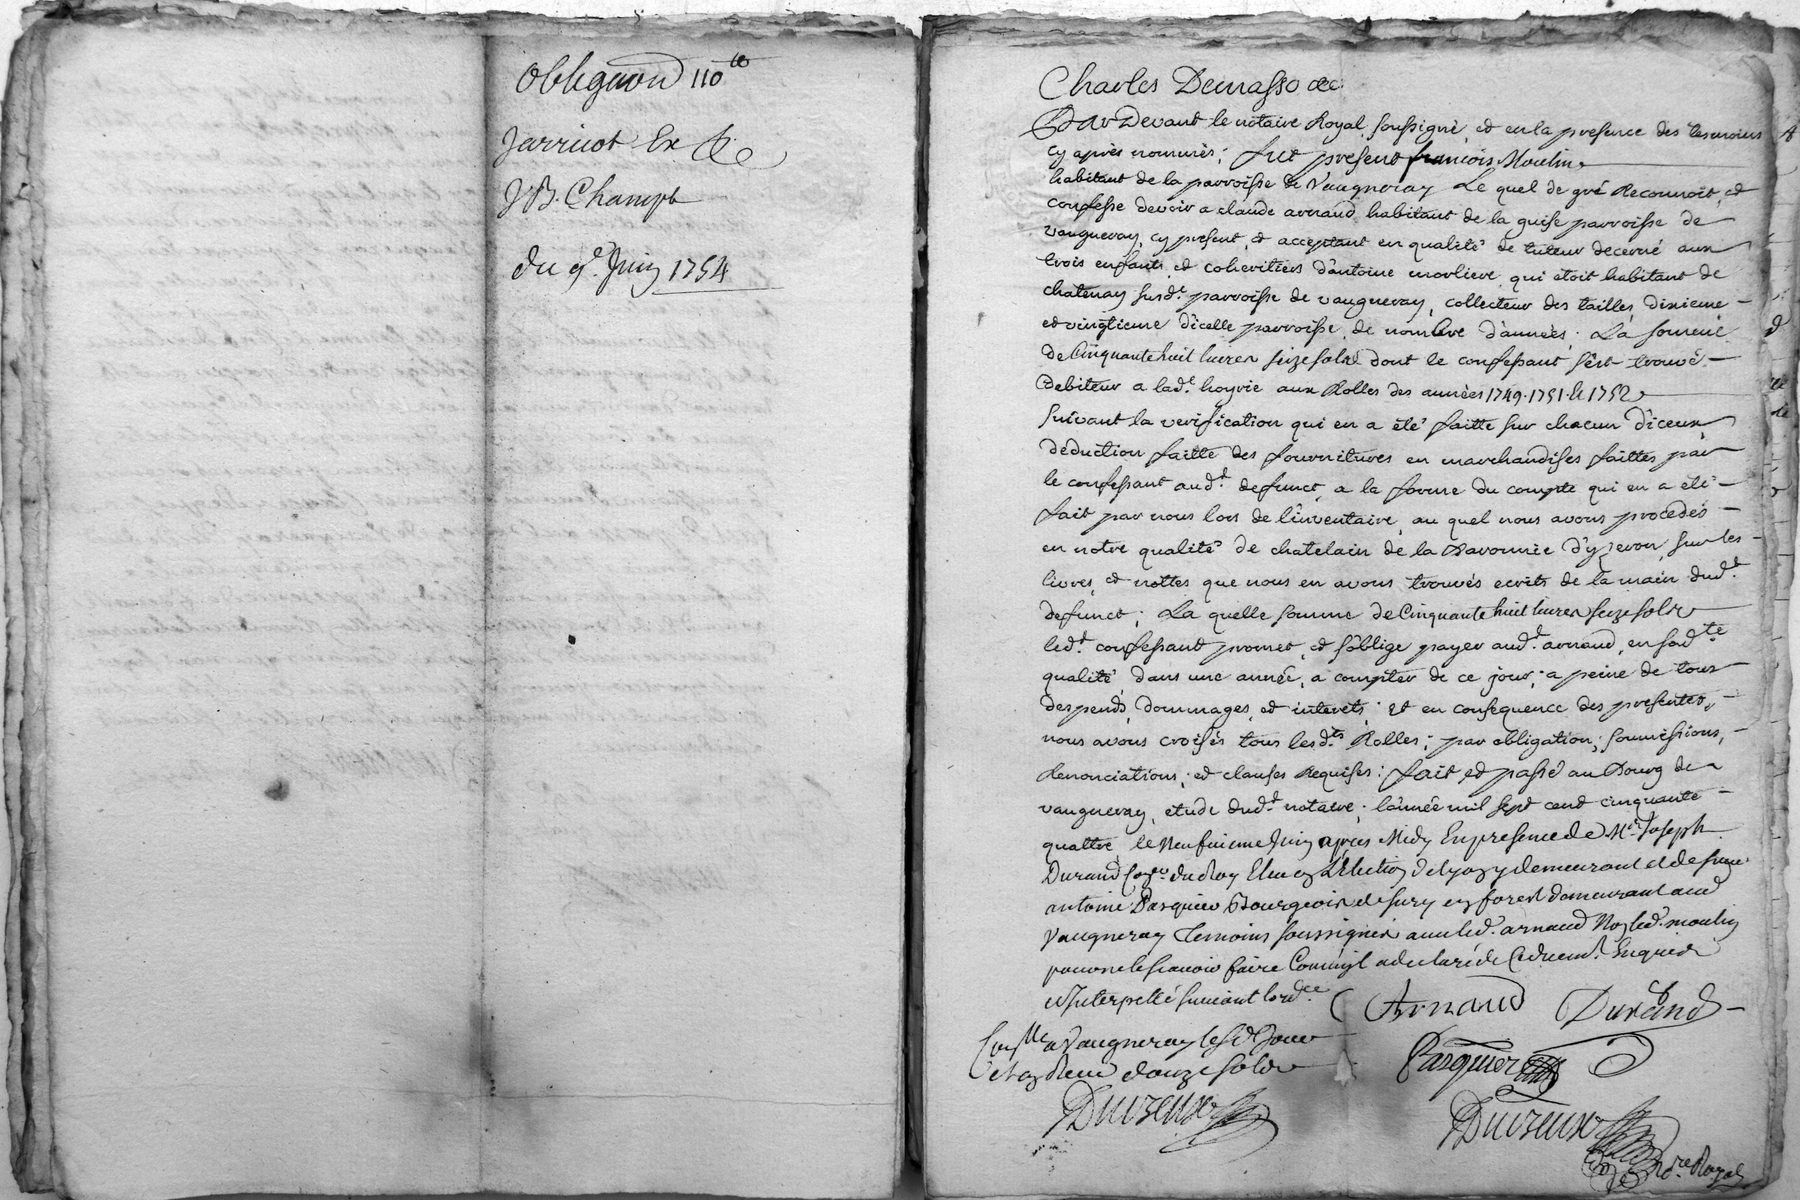 Obligaõn 110te
Jarricot Ex
JB. Champt
du 9e. Juin 1754
Charles Demasso &c.
Pardevant le notaire Royal soussigné, et en la presence des temoins
cy après nommés; fut present francois Moulin
habitant de la parroisse de Vaugneray Le quel de gré Reconnoit, et
confesse devoir a claude arnaud habitant de la guise parroisse de
vaugneray, cy present, et acceptant en qualité de tuteur decerné aux
trois enfants, et coheritiers d'antoine morliere, qui étoit habitant de
chatenay susd.e parroisse de vaugneray, collecteur des tailles, dixieme
et vingtieme d'icelle parroisse, de nombre d'années; La somme
de Cinquante huit livres seize sols dont le confessant s'est trouvé
debiteur a lad.e hoyrie aux Rolles des années 1749. 1751. & 1752
suivant la verification qui en a été faitte sur chacun d'iceux
déduction faitte des fournitures en marchandises faittes par
le confessant aud.t defunct, a la forme du compte qui en a été
fait par nous lors de l'inventaire, au quel nous avons procedés
en notre qualité de chatelain de la Baronnie d'yzeron, sur les
livres, et nottes que nous en avons trouvés ecrits de la main dud.t
defunct; La quelle somme de Cinquante huit livres seize sols
led.t confessant promet, et s'oblige payer aud.t arnaud, en sad.te
qualité, dans une année, a compter de ce jour; a peine de tous
despends, dommages, et interets; et en consequence des presentes,
nous avons croisés tous lesd.ts Rolles; par obligation, soumissions,
Renonciations, et clauses Requises: fait et passé au Bourg de
vaugneray, etude dud.t notaire; l'année mil sept cent cinquante
quattre le Neufuieme Juin après Midy En presence de Me Joseph
Durand Coner. du Roy Elu en L'Election de Lyon y demeurant et de sieur
antoine Pasquier Bourgeois de Sury en forest demeurant aud
Vaugneray temoins soussignés avec led. arnaud Non led. moulin
pour ne le scavoir faire Comme il a declaré de Ce Enquis
et Interpellé suivant lord.ce
Arnaud Durand
Con.lle a Vaugneray led Jour
et an Receu douze sols
Pasquier
Duvzeux
Duvzeux
No.re Royal